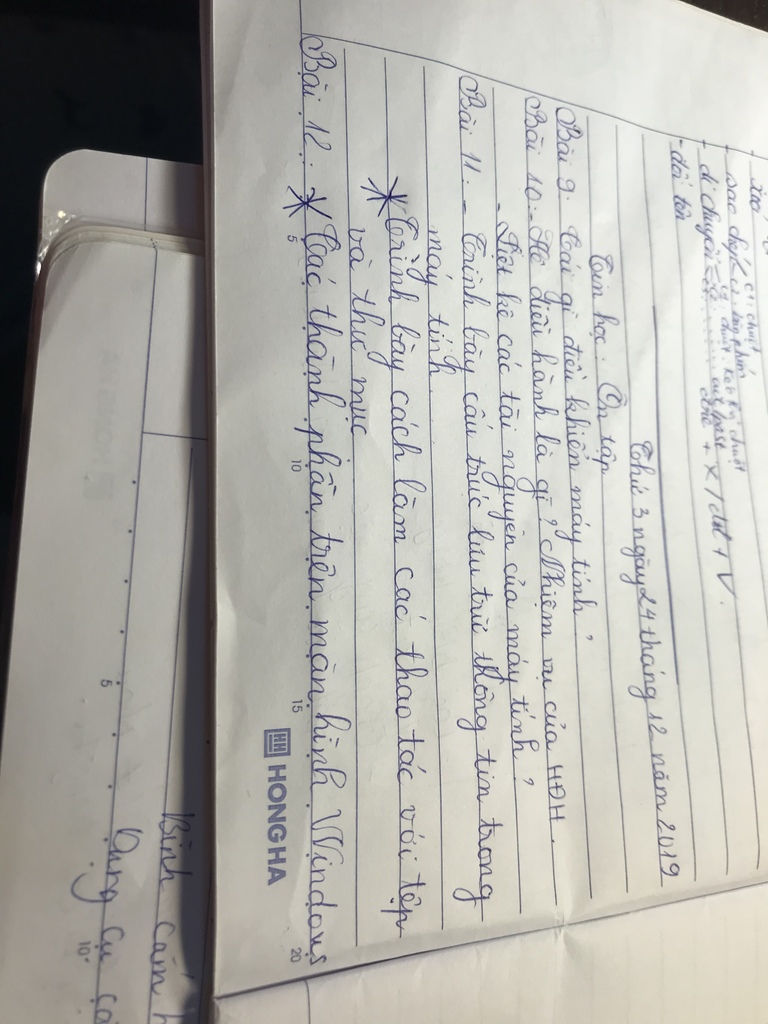 xoá
sao chép
di chuyển
- đổi tên
Thứ 3 ngày 24 tháng 12 năm 2019
Tin học: Ôn tập
Bài 9: Cái gì điều khiển máy tính?
Bài 10: - Hệ điều hành là gì? Nhiệm vụ của HĐH.
- Liệt kê các tài nguyên của máy tính?
Bài 11: - Trình bày cấu trúc lưu trữ thông tin trong
máy tính.
* Trình bày cách làm các thao tác với tệp
và thư mục
Bài 12: * Các thành phần trên màn hình Windows
5 10 15 20
HH HONG HA
Bình cầm
Dụng cụ
5 10